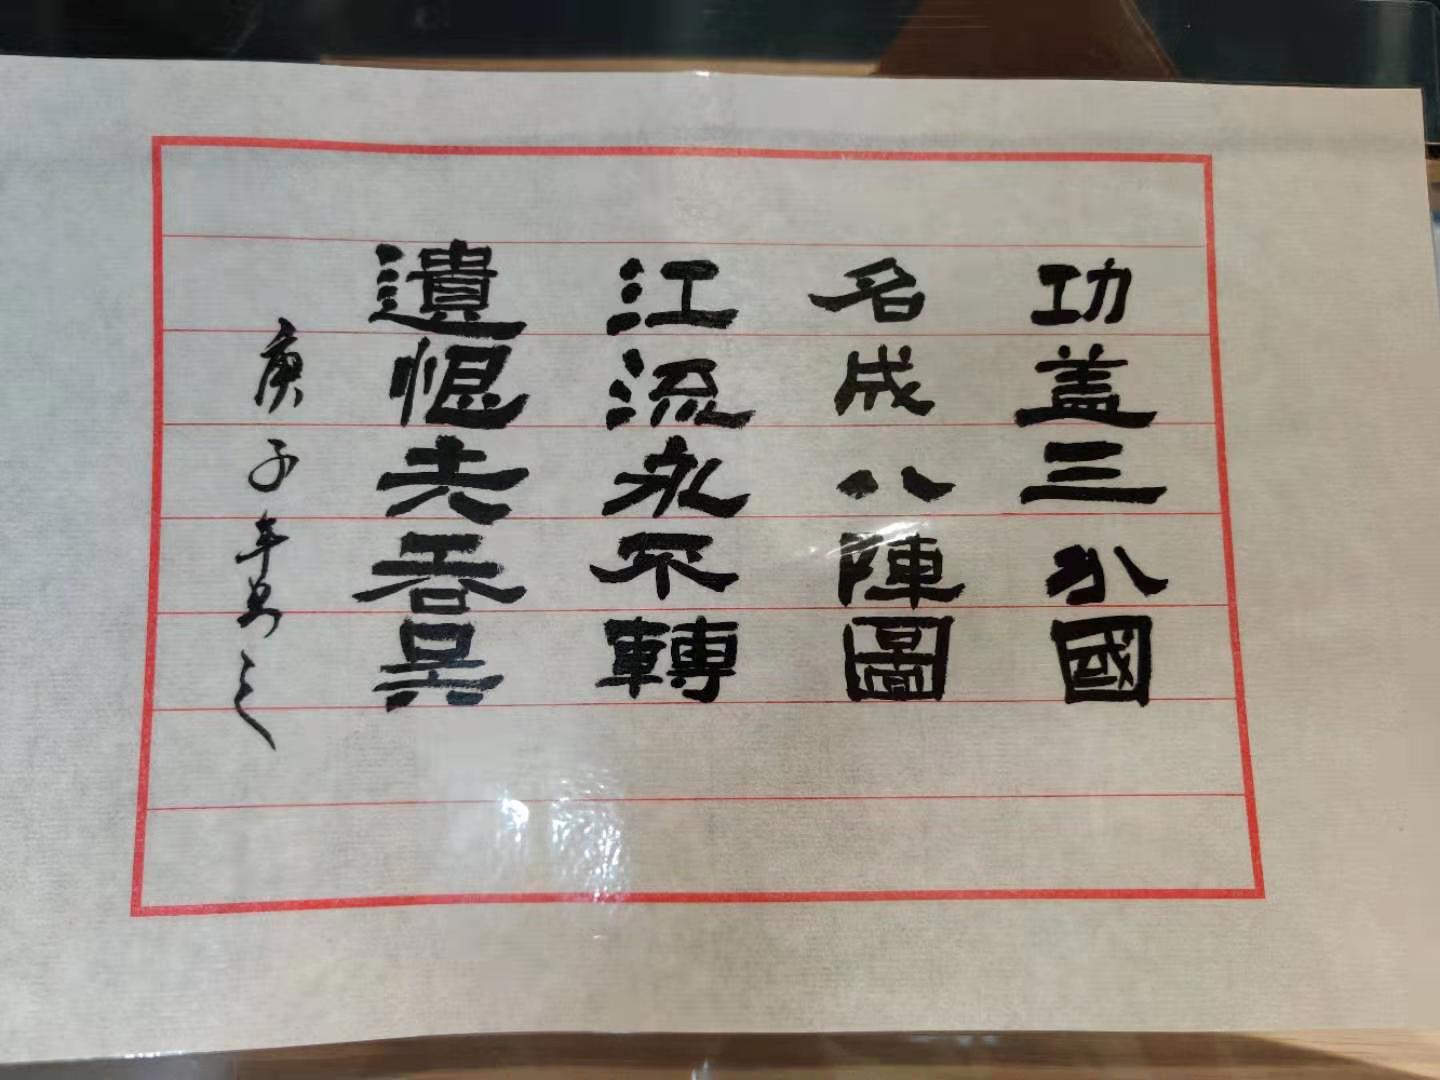 功盖三分國
名成八陣圖
江流永不轉
遺恨失吞吳
庚子年之